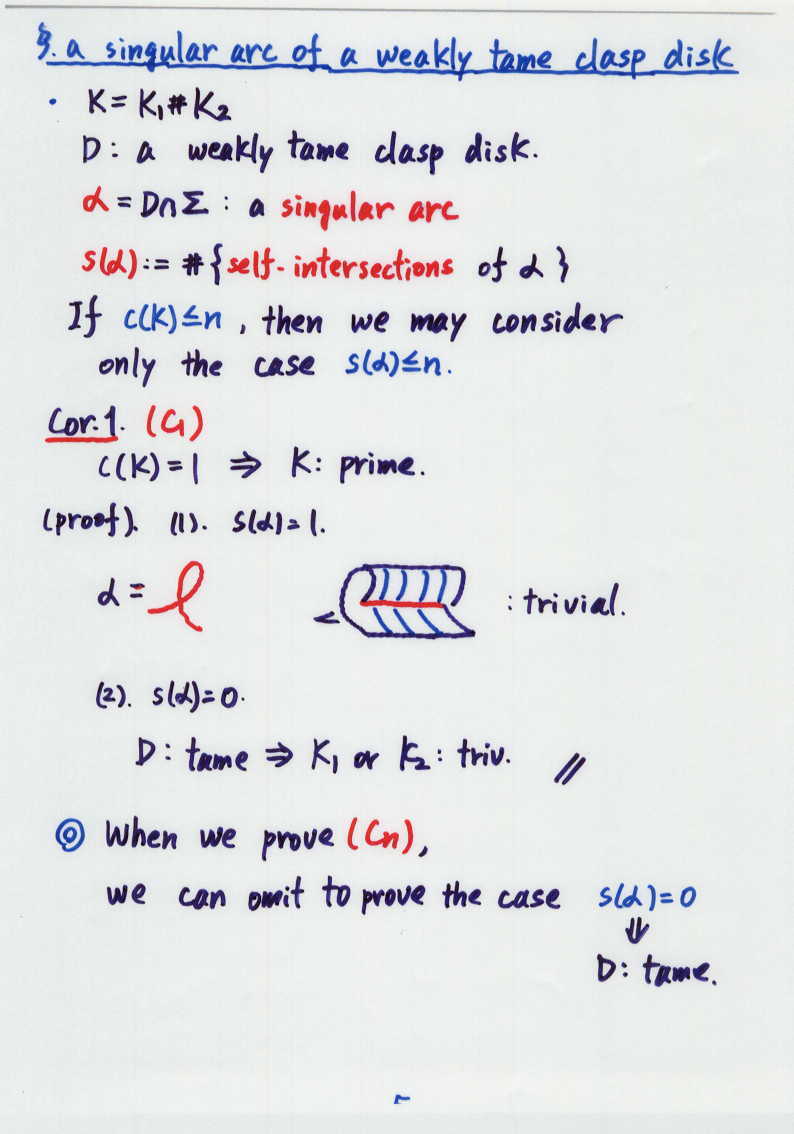 §. a singular arc of a weakly tame clasp disk
・ K = K₁ # K₂
D : a weakly tame clasp disk.
α = D∩Σ : a singular arc
s(α) := #{self-intersections of α}
If c(K)≤n, then we may consider
only the case s(α)≤n.
Cor.1. (C₁)
c(K)=1 ⇒ K: prime.
(proof). (1). s(α)=1.
α = : trivial.
(2). s(α)=0.
D : tame ⇒ K₁ or K₂ : triv. //
◎ When we prove (Cn),
we can omit to prove the case s(α)=0
⇓
D : tame.